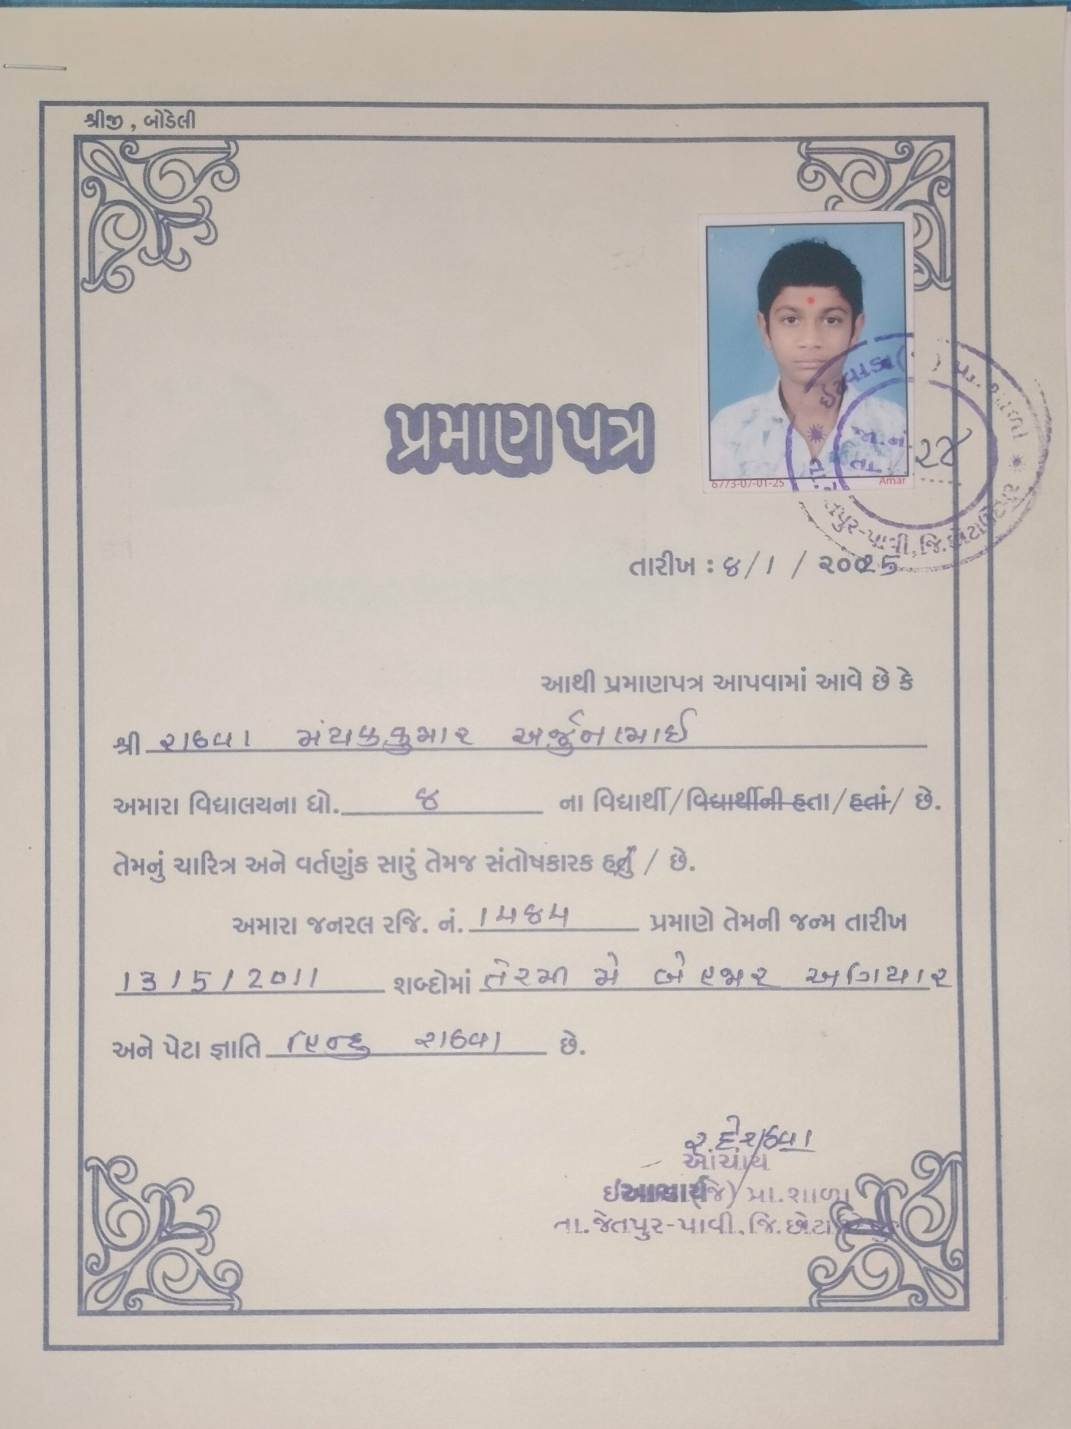 શ્રીજી , બોડેલી
પ્રમાણ પત્ર
6773-07-01-25 Amar
જા.નં. ૨૪
તા.
તારીખ : ૪/૧ / ૨૦૦૨5
આથી પ્રમાણપત્ર આપવામાં આવે છે કે
શ્રી રાઠવા મંયકકુમાર અર્જુનભાઈ
અમારા વિદ્યાલયના ધો. ૪ ના વિદ્યાર્થી/વિદ્યાર્થીની હતા/હતાં/ છે.
તેમનું ચારિત્ર અને વર્તણુંક સારું તેમજ સંતોષકારક હતું / છે.
અમારા જનરલ રજિ. નં. ૧૫૪૫ પ્રમાણે તેમની જન્મ તારીખ
13/5/2011 શબ્દોમાં તેરમી મે બે હજાર અગિયાર
અને પેટા જ્ઞાતિ હિન્દુ રાઠવા છે.
આચાર્ય
આચાર્ય
પ્રા.શાળા
તા.જેતપુર-પાવી, જિ.છોટા